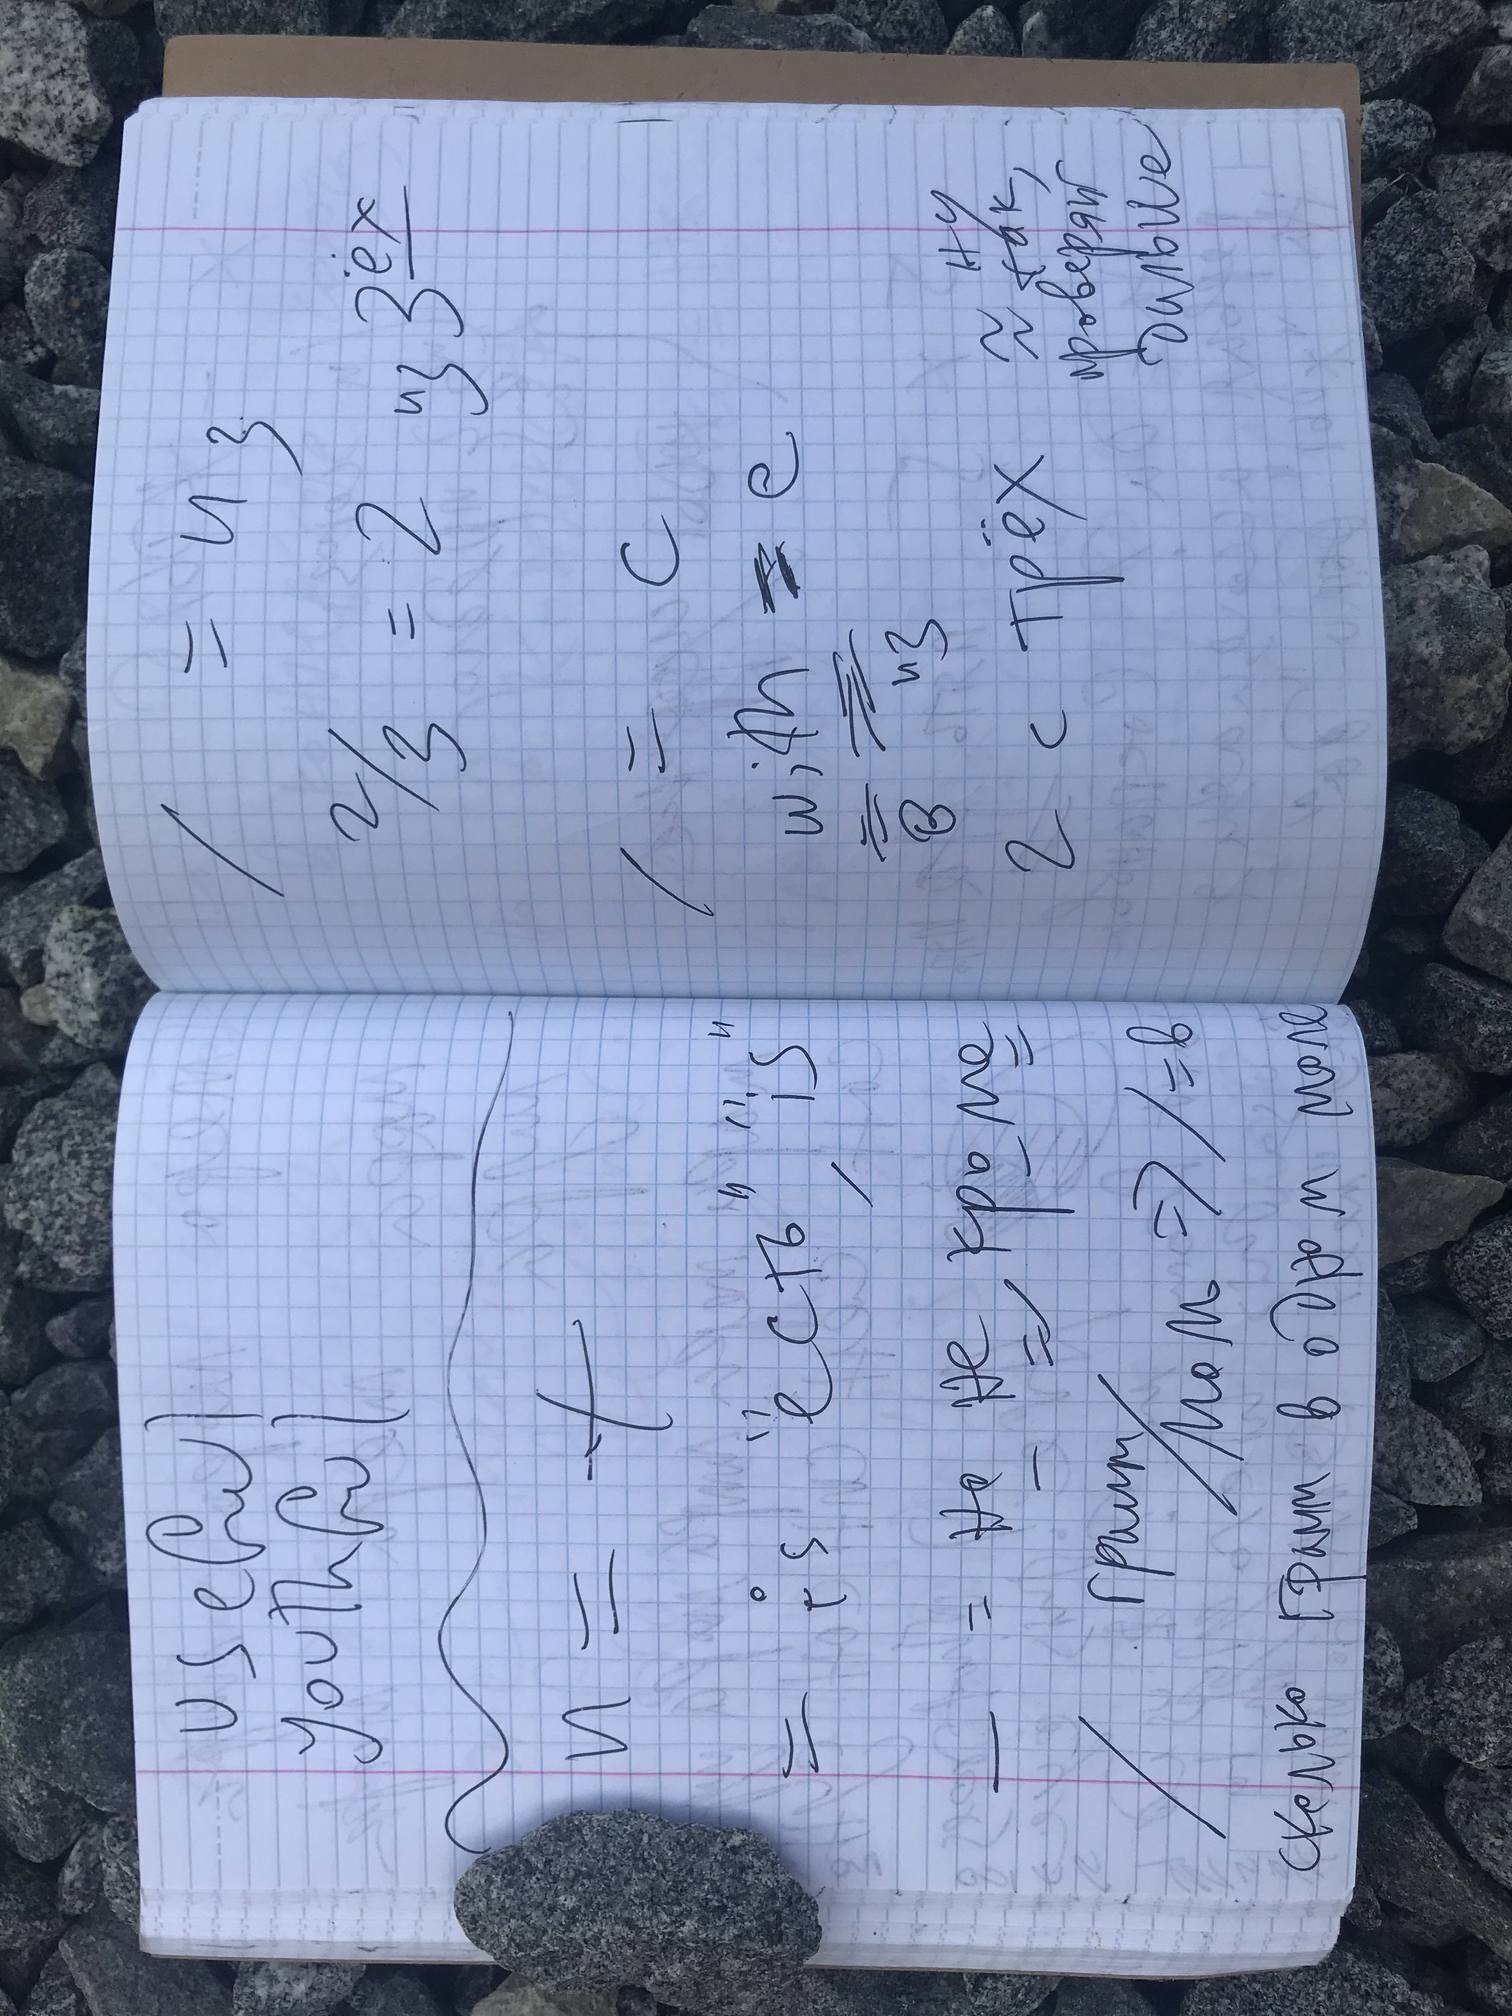 useful
youthful
и = +
= is "есть", "is"
— = но не, кро_ме
– =, =
/ грамм/моль => / = в
сколько грамм в одном моле
/ = из
2/3 = 2 из 3ёх
/ = с
with = е
= в из
2 с трёх
≈ ну
≈ так,
проверяй
дальше